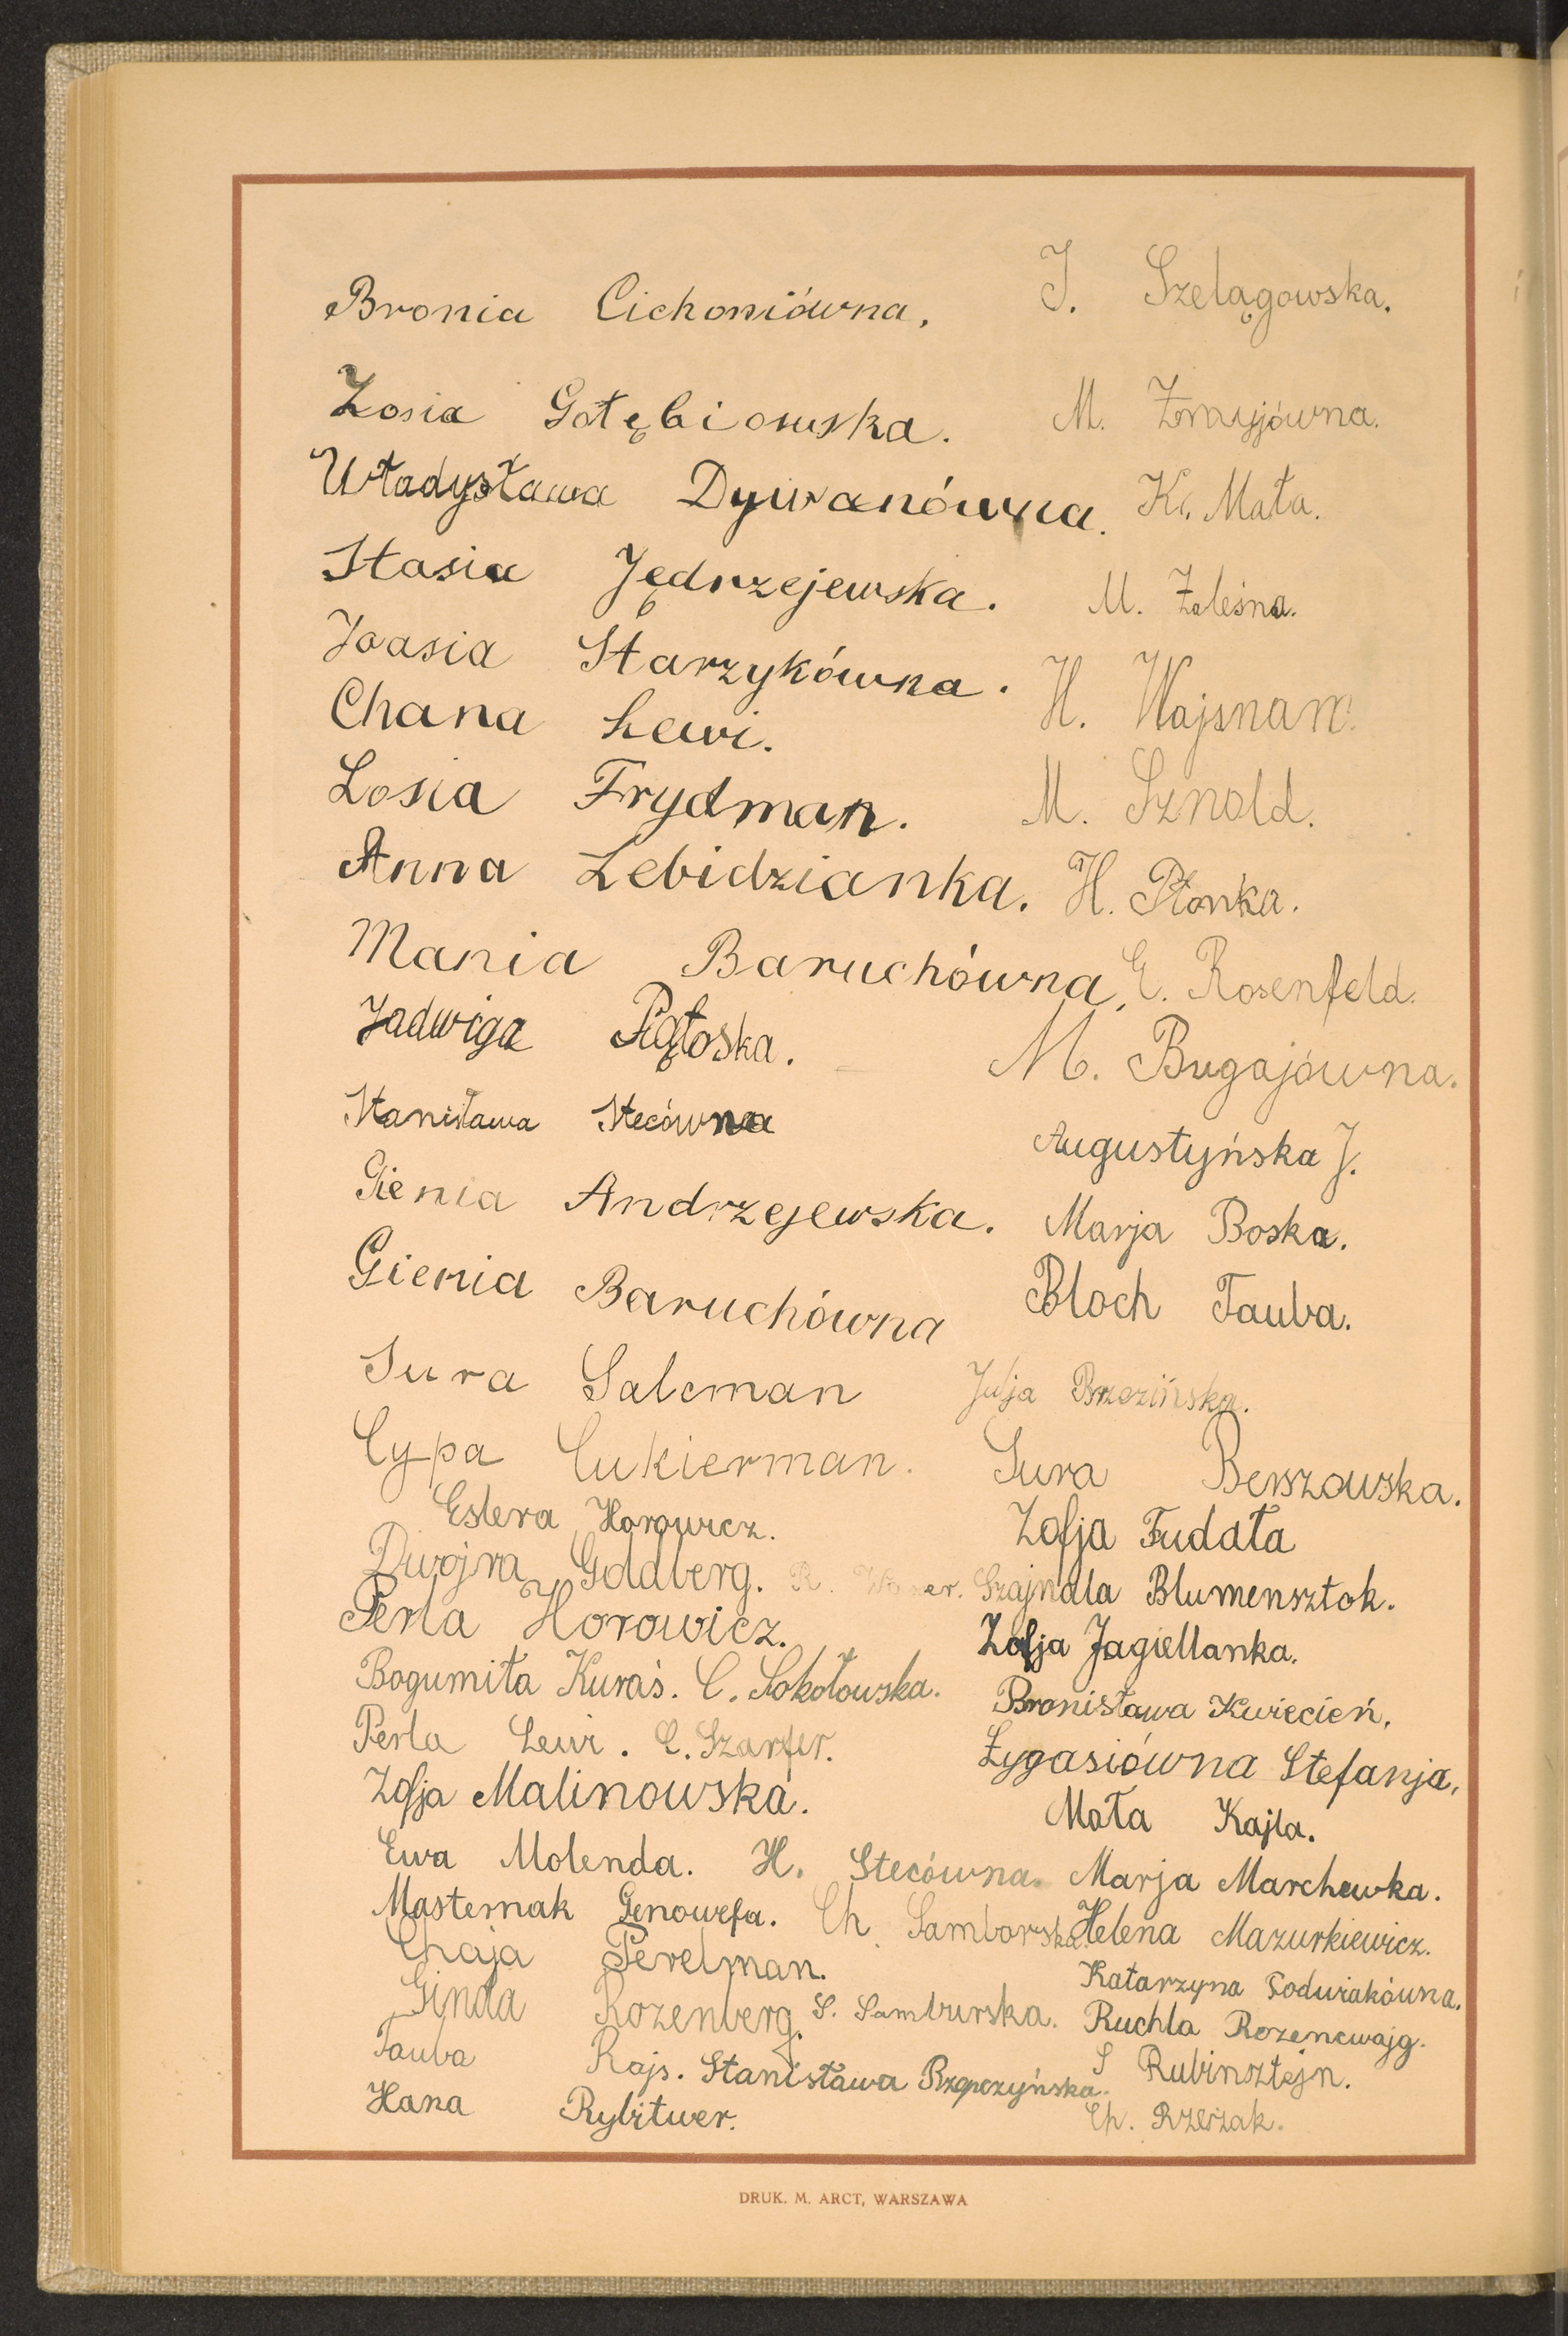 Bronia Cichoniówna. J. Szelągowska.
Zosia Gołębiowska. M. Żmijówna.
Władysława Dywanówna. K. Mała.
Stasia Jędrzejewska. M. Zaleśna.
Joasia Starzykówna. H. Wajsnan.
Chana Lewi. M. Sznold.
Zosia Frydman.
Anna Lebidzianka. H. Płonka.
Mania Baruchówna. G. Rosenfeld.
Jadwiga Piątoska. M. Bugajówna.
Stanisława Stecówna Augustyńska J.
Gienia Andrzejewska. Marja Boska.
Gienia Baruchówna Bloch Tauba.
Sura Salcman Julja Brzezińska.
Cypa Cukierman. Sura Berszowska.
Estera Horowicz. Zofja Fudała
Dwojra Goldberg. R. Szajndla Blumensztok.
Perla Horowicz. Zofja Jagiellanka.
Bogumiła Kuraś. C. Sokołowska. Bronisława Kwiecień.
Perla Lewi. C. Szarfer. Łygasiówna Stefanja.
Zofja Malinowska. Mała Kajla.
Ewa Molenda. H. Stecówna. Marja Marchewka.
Masternak Genowefa. Ch. Samborska. Helena Mazurkiewicz.
Chaja Perelman. Katarzyna Podwiakówna.
Ginda Rozenberg. S. Samburska. Ruchla Rozencwajg.
Tauba Rajs. Stanisława Rzepczyńska. S Rubinsztejn.
Hana Rybitwer. Ch. Rzeszak.
DRUK. M. ARCT, WARSZAWA